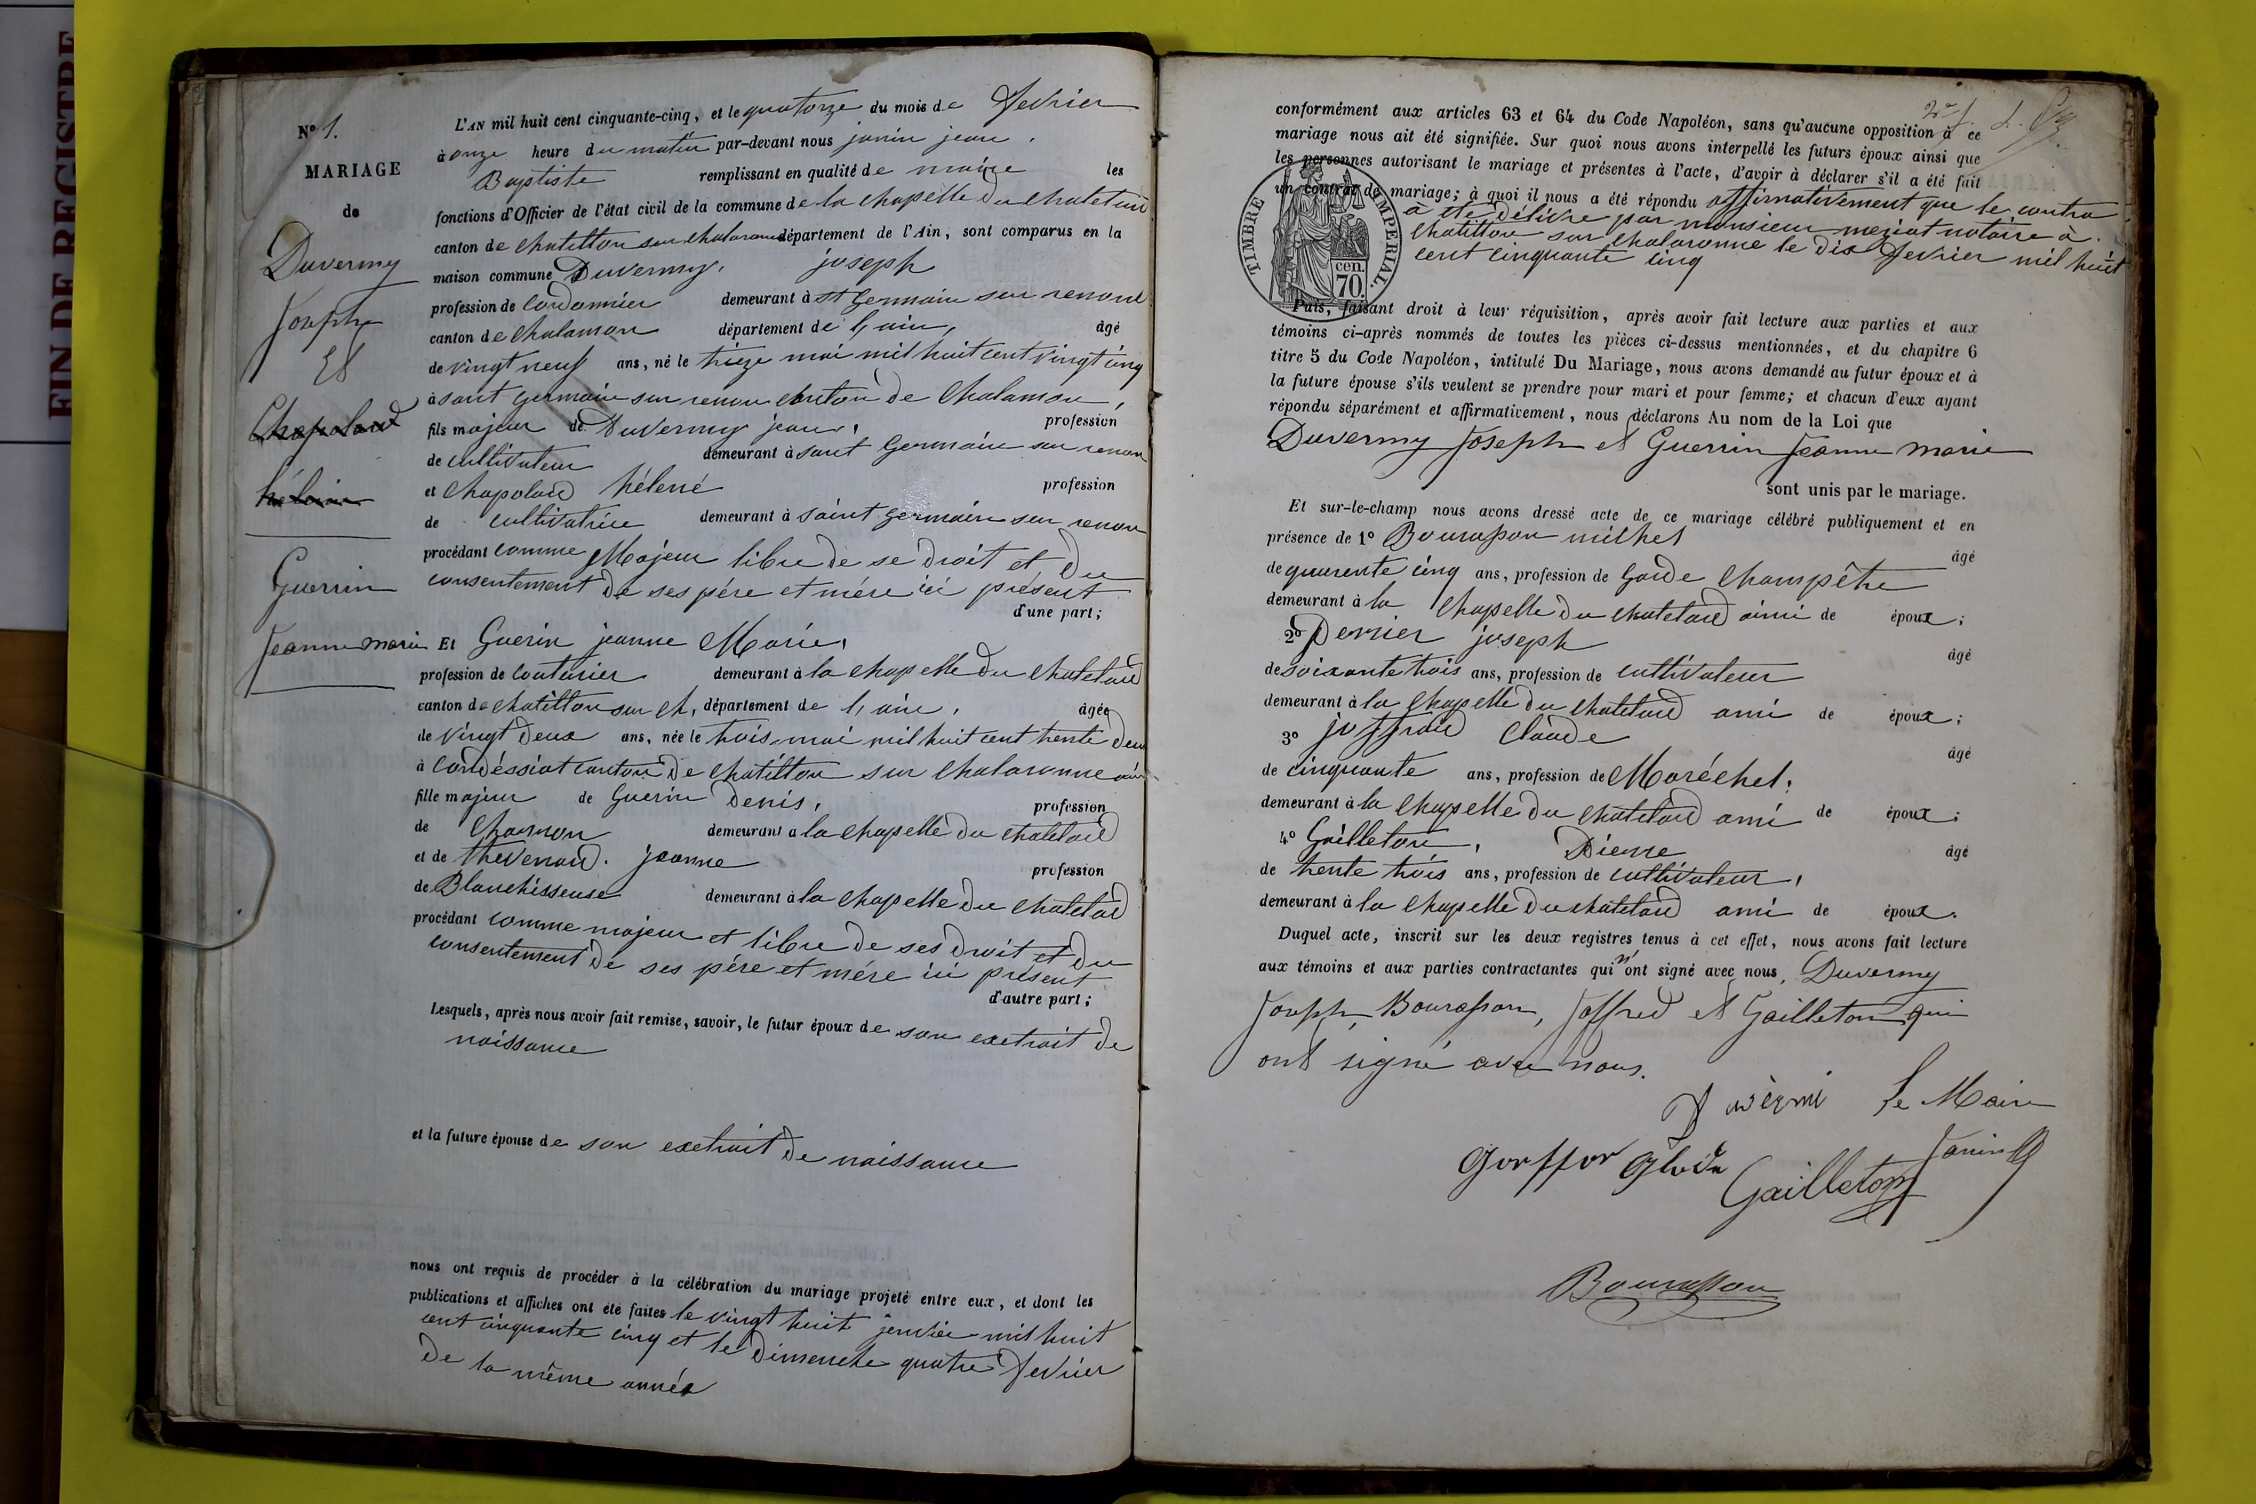 FIN DE REGISTRE
N° 1.
MARIAGE
de
Duvermy
Joseph
Et
Chapoland
hélaine
Guerrin
Jeanne marie
L'AN mil huit cent cinquante-cinq, et le quatorze du mois de fevrier
à onze heure du matin par-devant nous janin jean
Baptiste remplissant en qualité de maire les
fonctions d'Officier de l'état civil de la commune de la chapelle du chatelard
canton de chatillon sur chalaronne département de l'Ain, sont comparus en la
maison commune Duvermy, joseph
profession de cordonnier demeurant à st Germain sur renont
canton de chalamon département de l, ain, âgé
de vingt neuf ans, né le trieze mai mil huit cent vingt cinq
à saint germain sur renon canton de chalamon,
fils majeur de Duvermy jean, profession
de cultivateur demeurant à saint Germain sur renon
et chapolard hélené profession
de cultivatrice demeurant à saint germain sur renon
procédant comme Majeur libre de se droit et du
consentement de ses pére et mére ici présent
d'une part;
Et Guerin jeanne Marie,
profession de couturier demeurant à la chapelle du chatelard
canton de chatillon sur ch, département de l, ain, âgée
de vingt deux ans, née le trois mai mil huit cent trente deux
à condéssiat canton de chatillon sur chalaronne ain
fille majeur de Guerin Denis, profession
de charron demeurant à la chapelle du chatelard
et de thevenard. jeanne profession
de Blanchisseuse demeurant à la chapelle du chatelard
procédant comme majeur et libre de ses droit et du
consentement de ses pére et mére ici présent
d'autre part;
Lesquels, après nous avoir fait remise, savoir, le futur époux de son exetrait de
naissance
et la future épouse de son exetrait de naissance
nous ont requis de procéder à la célébration du mariage projeté entre eux, et dont les
publications et affiches ont été faites le vingt huit janvier mil huit
cent cinquante cinq et le dimenche quatre fevrier
de la même année
conformément aux articles 63 et 64 du Code Napoléon, sans qu'aucune opposition à ce
mariage nous ait été signifiée. Sur quoi nous avons interpellé les futurs époux ainsi que
les personnes autorisant le mariage et présentes à l'acte, d'avoir à déclarer s'il a été fait
un contrat de mariage; à quoi il nous a été répondu affirmativement que le contra
à été délivré par monsieur notaire à
chatillon sur chalaronne le dix fevrier mil huit
cent cinquante cinq
TIMBRE IMPERIAL.
cen.
70.
Puis, faisant droit à leur réquisition, après avoir fait lecture aux parties et aux
témoins ci-après nommés de toutes les pièces ci-dessus mentionnées, et du chapitre 6
titre 5 du Code Napoléon, intitulé Du Mariage, nous avons demandé au futur époux et à
la future épouse s'ils veulent se prendre pour mari et pour femme; et chacun d'eux ayant
répondu séparément et affirmativement, nous déclarons Au nom de la Loi que
Duvermy Joseph et Guerrin Jeanne marie
sont unis par le mariage.
Et sur-le-champ nous avons dressé acte de ce mariage célébré publiquement et en
présence de 1° Bourasson michel âgé
de quarente cinq ans, profession de Garde Champêtre
demeurant à la chapelle du chatelard aimi de époux;
2° Perrier joseph âgé
de soixante trois ans, profession de cultivateur
demeurant à la chapelle du chatelard ami de époux;
3° joffrais Claude âgé
de cinquante ans, profession de Maréchel,
demeurant à la chapelle du chatelard ami de époux;
4° Gailleton, Pierre âgé
de trente trois ans, profession de cultivateur,
demeurant à la chapelle du chatelard ami de époux.
Duquel acte, inscrit sur les deux registres tenus à cet effet, nous avons fait lecture
aux témoins et aux parties contractantes qui n'ont signé avec nous, Duvermy
Joseph, Bourasson, Joffred et Gailleton qui
ont signé avec nous.
Duvèrmi Le Maire
Janin
Gorffor Glode
Gailleton
Bourasson